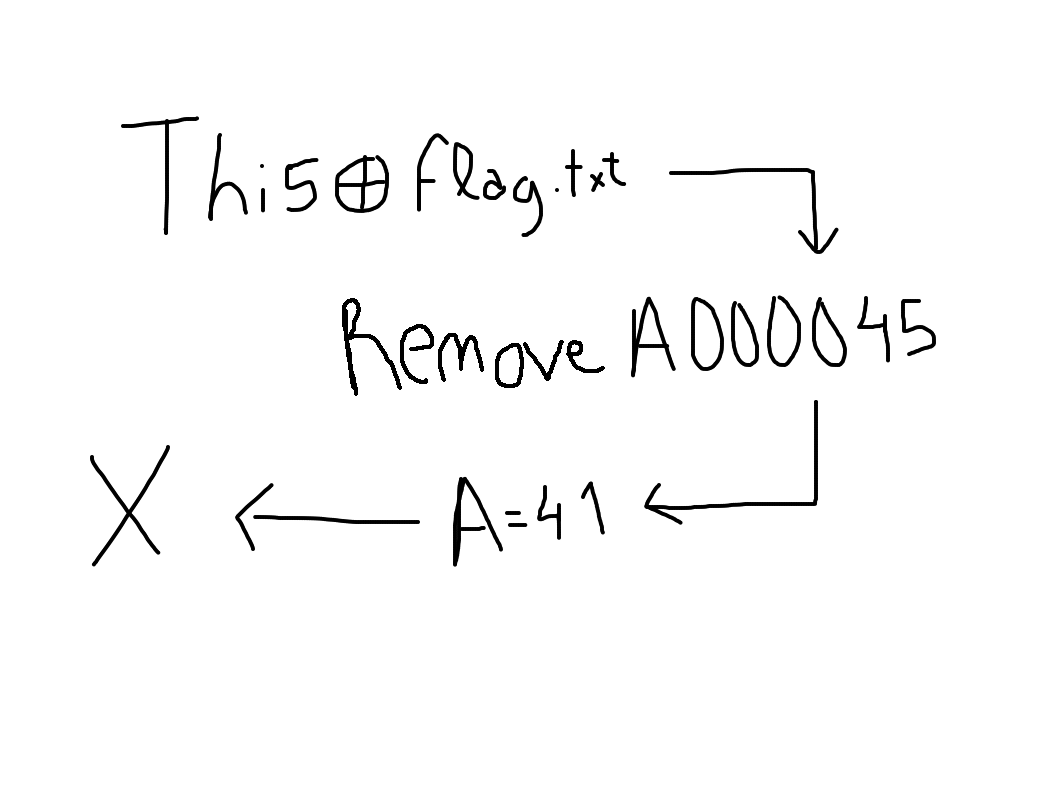 Thi5⊕flag.txt
Remove A000045
X A=41